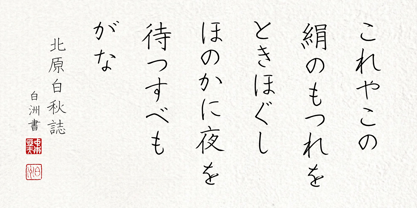 これやこの
絹のもつれを
ときほぐし
ほのかに夜を
待つすべも
がな
北原白秋誌
白洲書